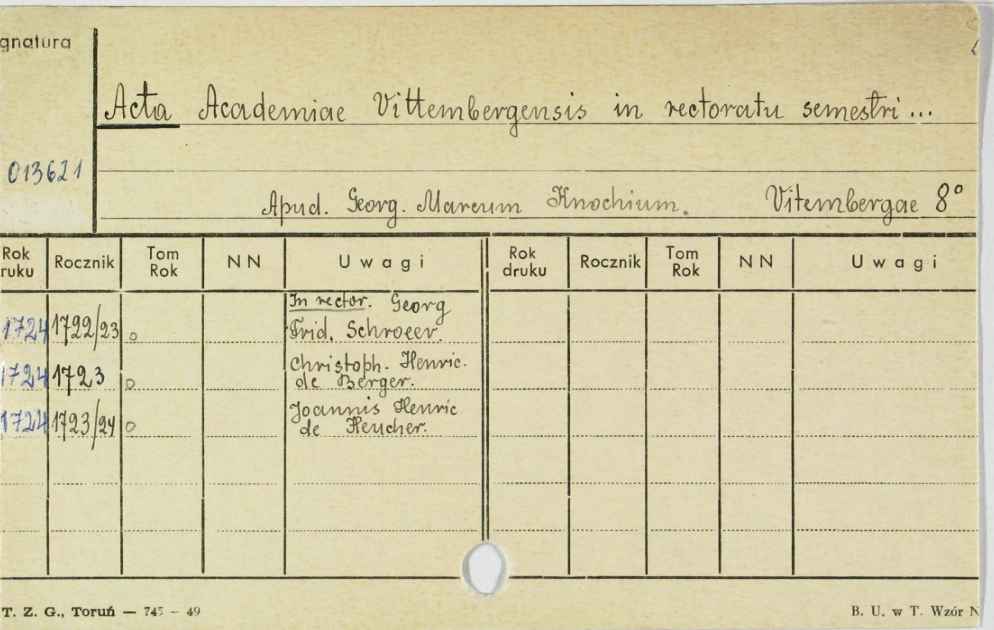 gnatura
Acta Academiae Vittembergensis in rectoratu semestri...
013621
Apud. Georg. Marcum Knochium. Vitembergae 8°
Rok druku Rocznik Tom Rok NN Uwagi Rok druku Rocznik Tom Rok NN Uwagi
In rector. Georg
1724 1722/23 o Frid. Schroeer.
Christoph. Henric.
1724 1723 o de Berger.
Joannis Henric
1724 1723/24 o de Heucher.
T. Z. G., Toruń — 745 – 49 B. U. w T. Wzór N